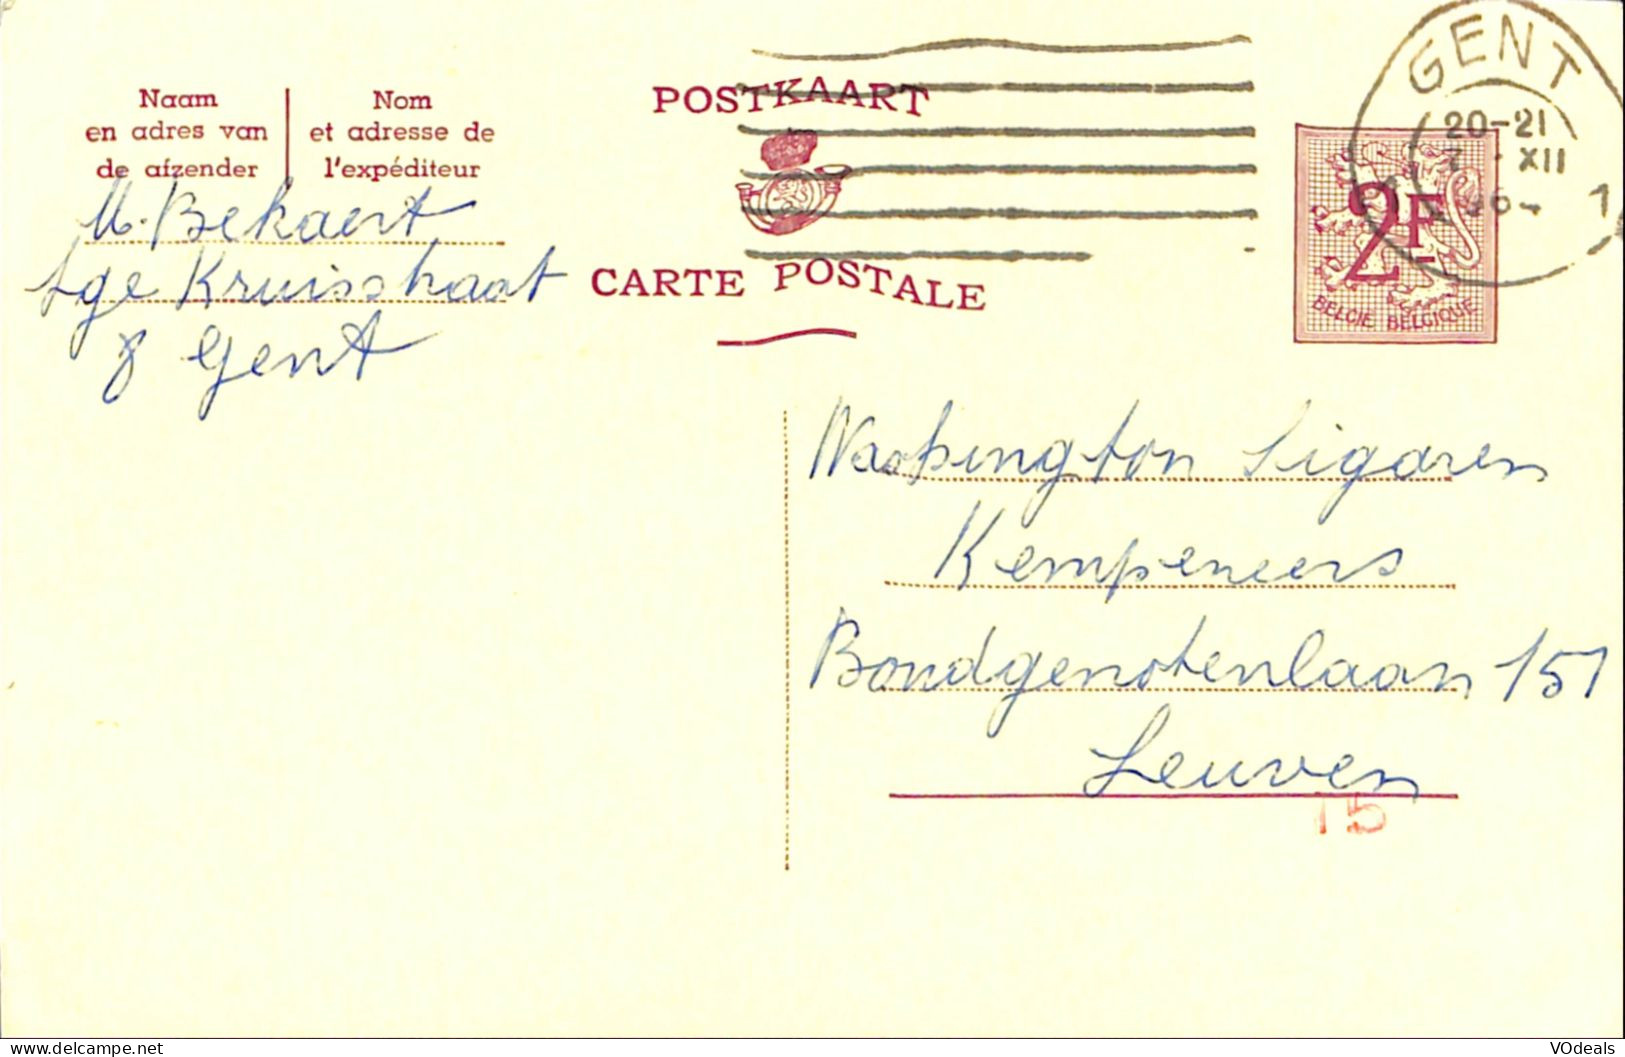 Naam
en adres van
de afzender
Nom
et adresse de
l'expéditeur
POSTKAART
CARTE POSTALE
GENT
20-21
XII
1
2F
BELGIE BELGIQUE
M. Bekaert
Lge Kruisstraat
8 Gent
Washington Sigaren
Kempeneers
Bondgenotenlaan 151
Leuven
15
VOdeals